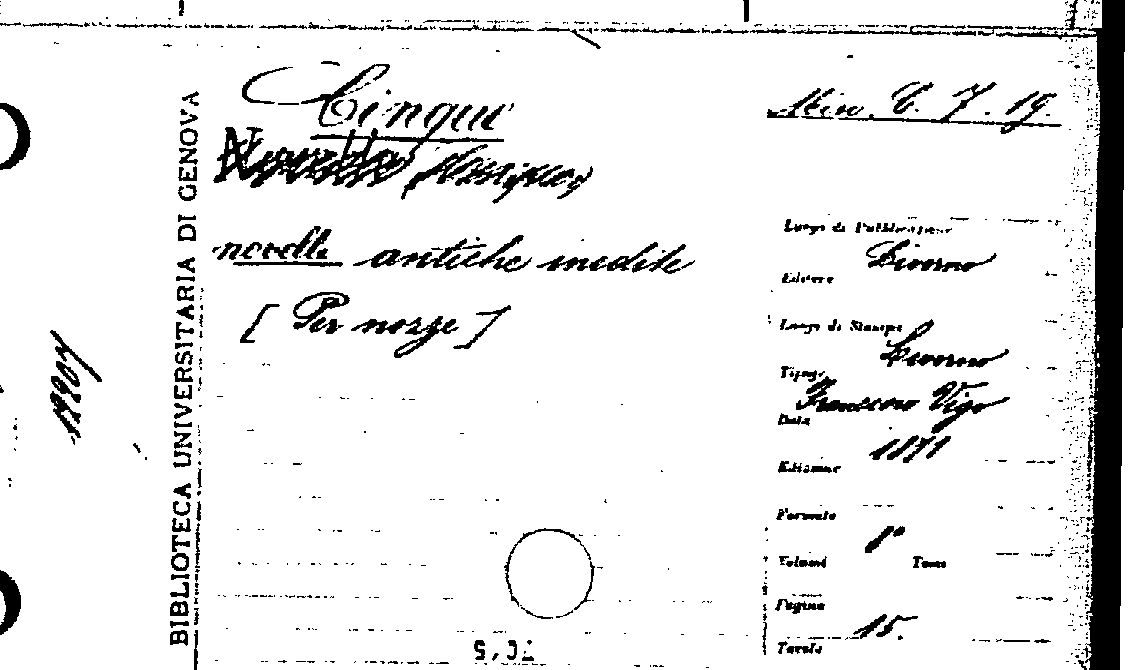 BIBLIOTECA UNIVERSITARIA DI GENOVA
Cinque
novelle antiche inedite
[Per nozze]
Misc. C. 7. 19.
Luogo di Pubblicazione
Livorno
Editore
Luogo di Stampa
Livorno
Tipogr.
Francesco Vigo
Data
1871
Edizione
Formato
8°
Volumi Tomi
Pagine
15.
Tavole